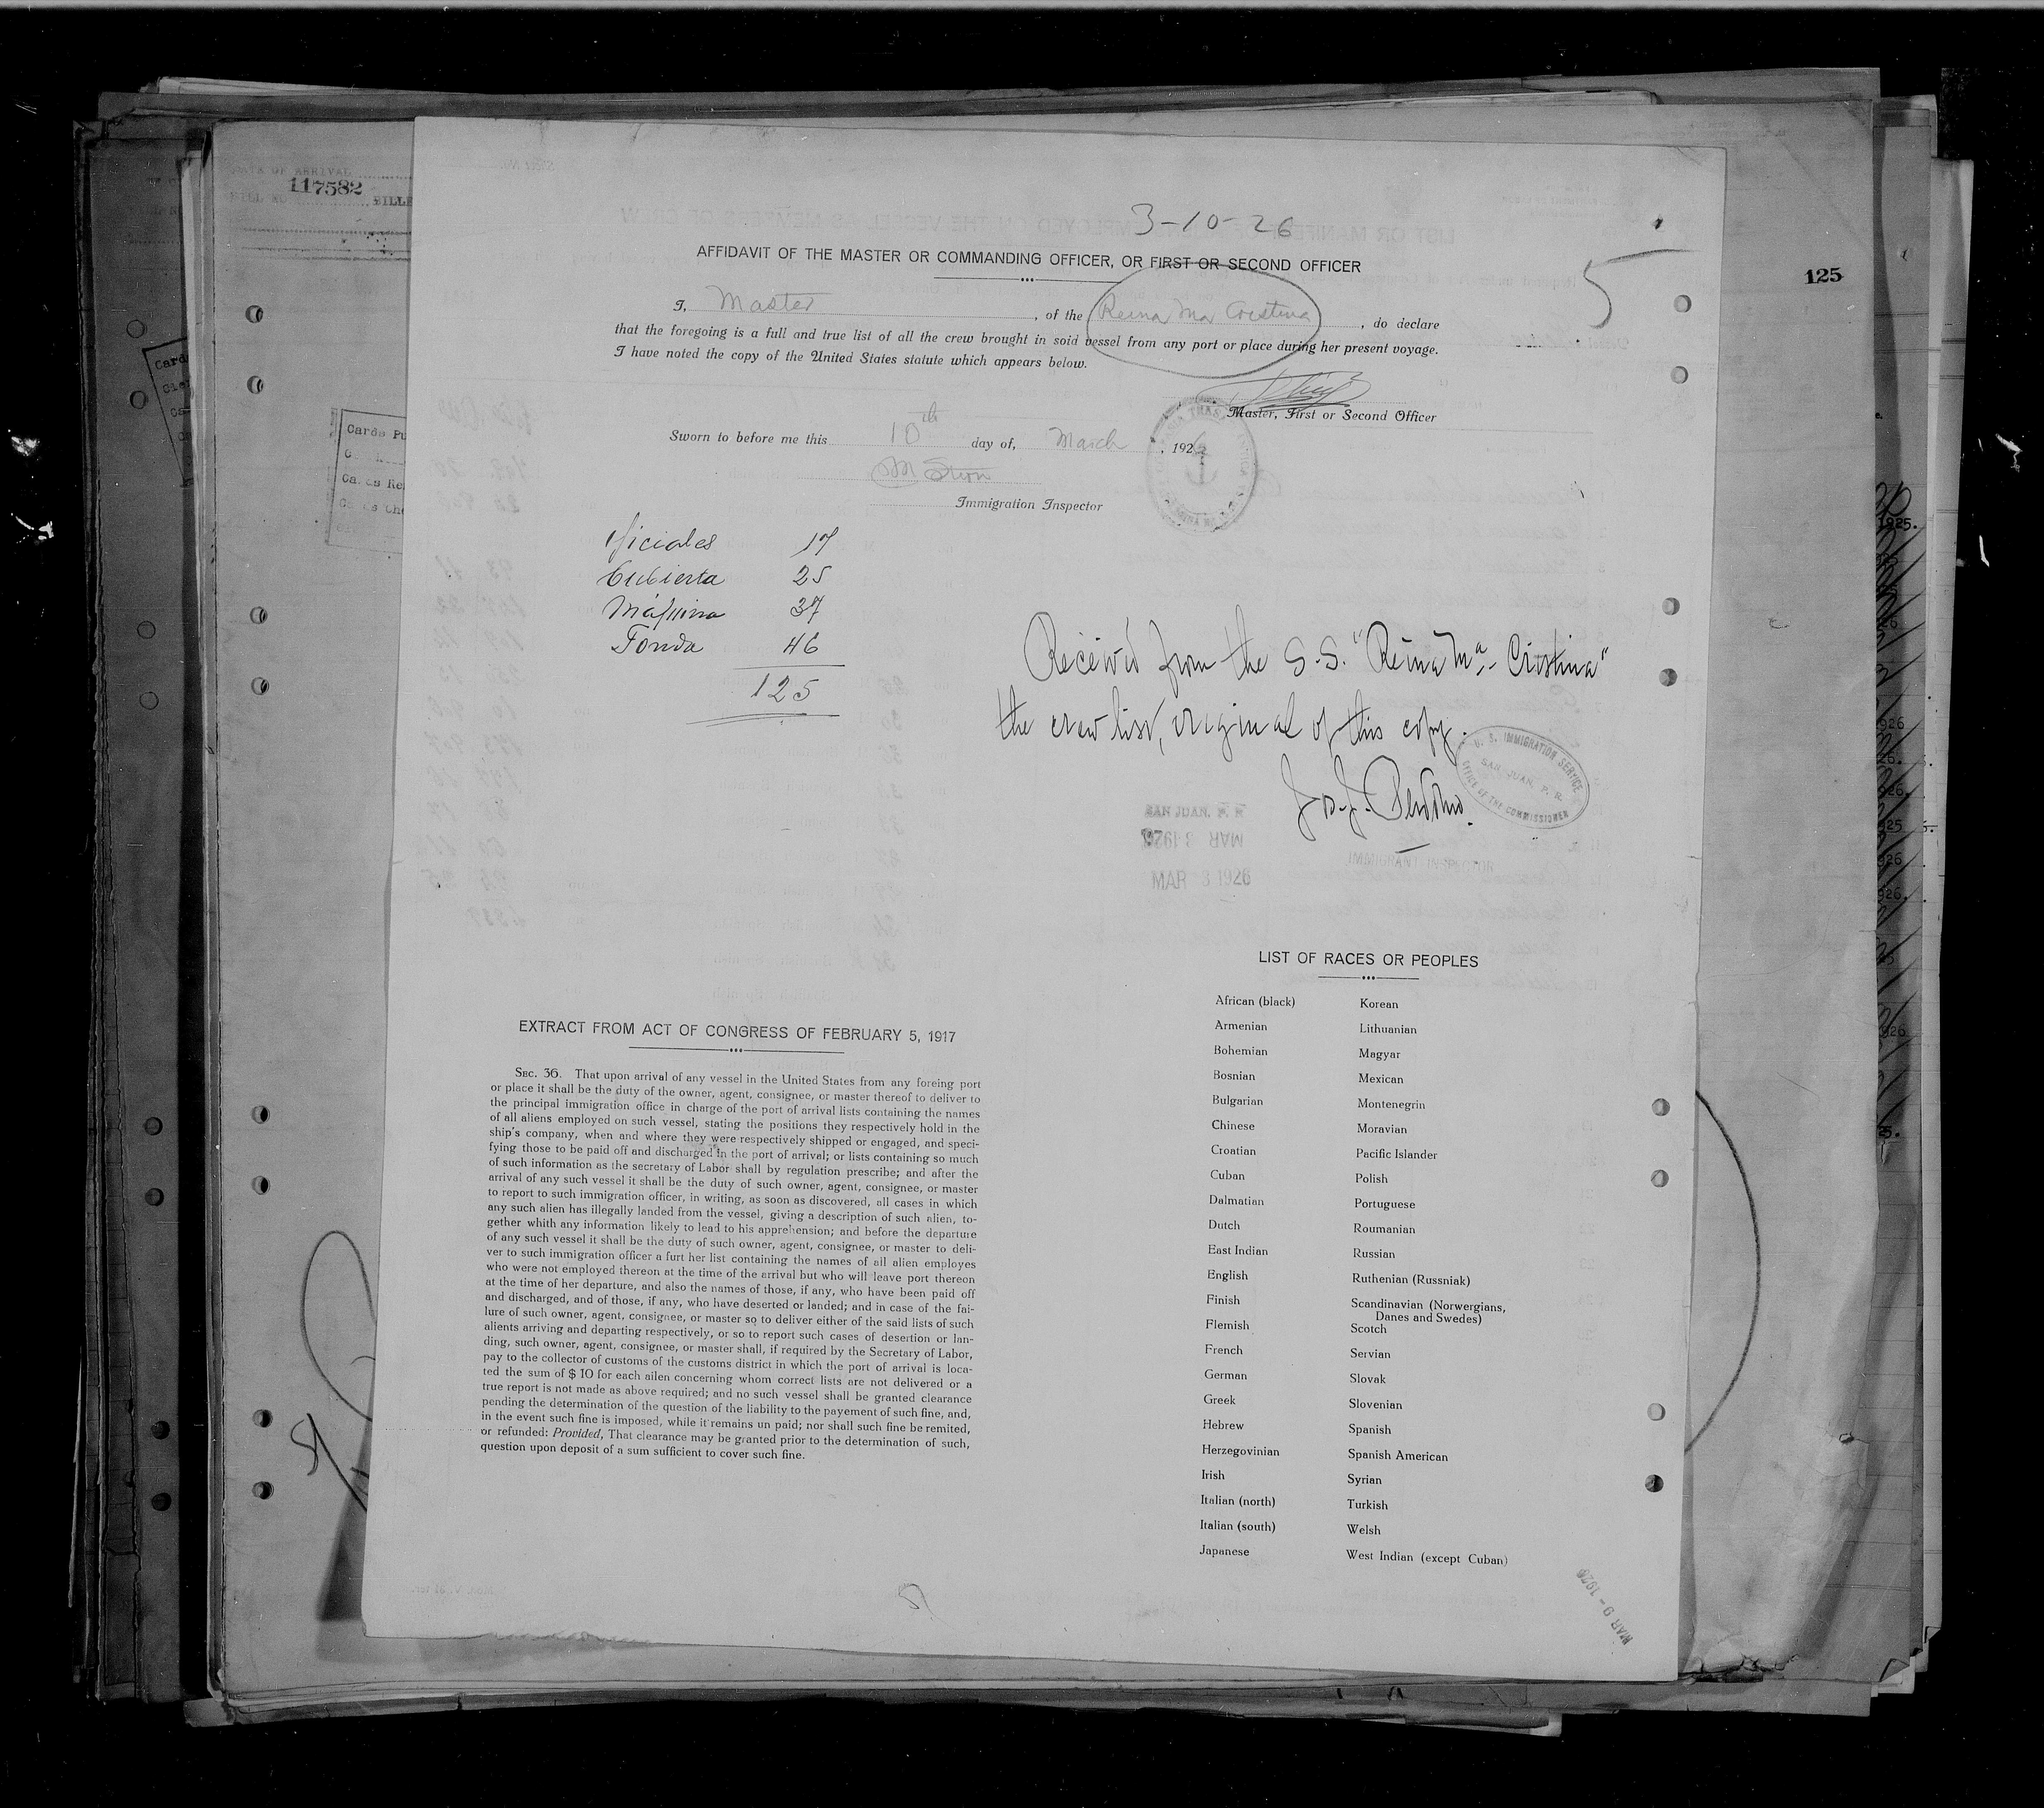 DATE OF ARRIVAL
117582
125
3-10-26
5
AFFIDAVIT OF THE MASTER OR COMMANDING OFFICER, OR FIRST OR SECOND OFFICER
I, Master, of the Reina Ma Cristina, do declare
that the foregoing is a full and true list of all the crew brought in soid vessel from any port or place during her present voyage.
I have noted the copy of the United States statute which appears below.
Master, First or Second Officer
Sworn to before me this 10th day of, March, 192
Immigration Inspector
Oficiales 17
Cubierta 25
Máquina 37
Fonda 46
125
Received from the S.S. "Reina Ma. Cristina"
the crew list, original of this copy.
U. S. IMMIGRATION SERVICE
SAN JUAN, P. R.
OFFICE OF THE COMMISSIONER
SAN JUAN, P. R.
MAR 3 1926
MAR 3 1926
IMMIGRANT INSPECTOR
EXTRACT FROM ACT OF CONGRESS OF FEBRUARY 5, 1917
SEC. 36. That upon arrival of any vessel in the United States from any foreing port
or place it shall be the duty of the owner, agent, consignee, or master thereof to deliver to
the principal immigration office in charge of the port of arrival lists containing the names
of all aliens employed on such vessel, stating the positions they respectively hold in the
ship's company, when and where they were respectively shipped or engaged, and speci-
fying those to be paid off and discharged in the port of arrival; or lists containing so much
of such information as the secretary of Labor shall by regulation prescribe; and after the
arrival of any such vessel it shall be the duty of such owner, agent, consignee, or master
to report to such immigration officer, in writing, as soon as discovered, all cases in which
any such alien has illegally landed from the vessel, giving a description of such alien, to-
gether whith any information likely to lead to his apprehension; and before the departure
of any such vessel it shall be the duty of such owner, agent, consignee, or master to deli-
ver to such immigration officer a furt her list containing the names of all alien employes
who were not employed thereon at the time of the arrival but who will leave port thereon
at the time of her departure, and also the names of those, if any, who have been paid off
and discharged, and of those, if any, who have deserted or landed; and in case of the fai-
lure of such owner, agent, consignee, or master so to deliver either of the said lists of such
alients arriving and departing respectively, or so to report such cases of desertion or lan-
ding, such owner, agent, consignee, or master shall, if required by the Secretary of Labor,
pay to the collector of customs of the customs district in which the port of arrival is loca-
ted the sum of $ 10 for each ailen concerning whom correct lists are not delivered or a
true report is not made as above required; and no such vessel shall be granted clearance
pending the determination of the question of the liability to the payement of such fine, and,
in the event such fine is imposed, while it remains un paid; nor shall such fine be remited,
or refunded: Provided, That clearance may be granted prior to the determination of such,
question upon deposit of a sum sufficient to cover such fine.
LIST OF RACES OR PEOPLES
African (black) Korean
Armenian Lithuanian
Bohemian Magyar
Bosnian Mexican
Bulgarian Montenegrin
Chinese Moravian
Croatian Pacific Islander
Cuban Polish
Dalmatian Portuguese
Dutch Roumanian
East Indian Russian
English Ruthenian (Russniak)
Finish Scandinavian (Norwergians,
Danes and Swedes)
Flemish Scotch
French Servian
German Slovak
Greek Slovenian
Hebrew Spanish
Herzegovinian Spanish American
Irish Syrian
Italian (north) Turkish
Italian (south) Welsh
Japanese West Indian (except Cuban)
MAR 9 - 1926